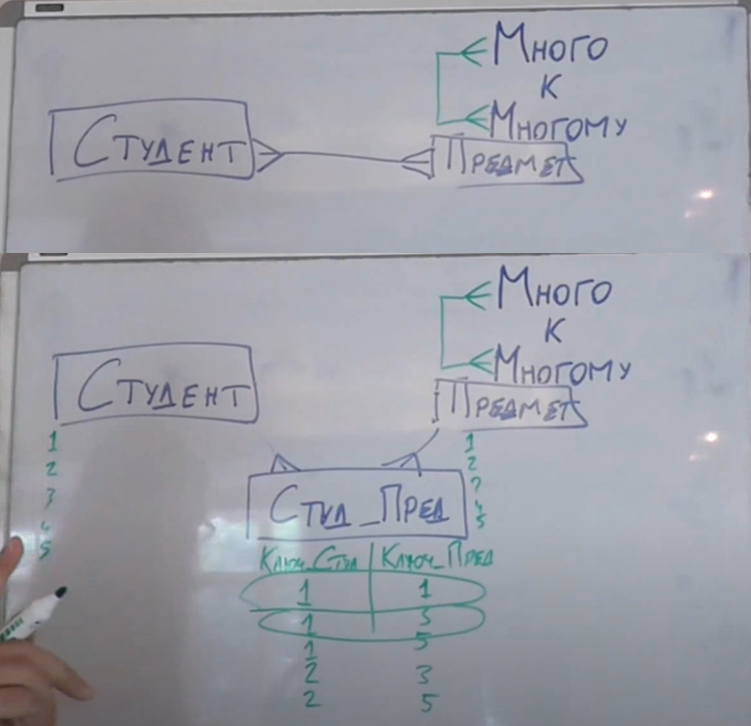 Много
к
Многому
Студент
Предмет
Много
к
Многому
Студент
Предмет
1
2
3
4
5
1
2
3
4
5
Студ_Пред
Ключ_Студ Ключ_Пред
1 1
1 3
1 5
2 3
2 5